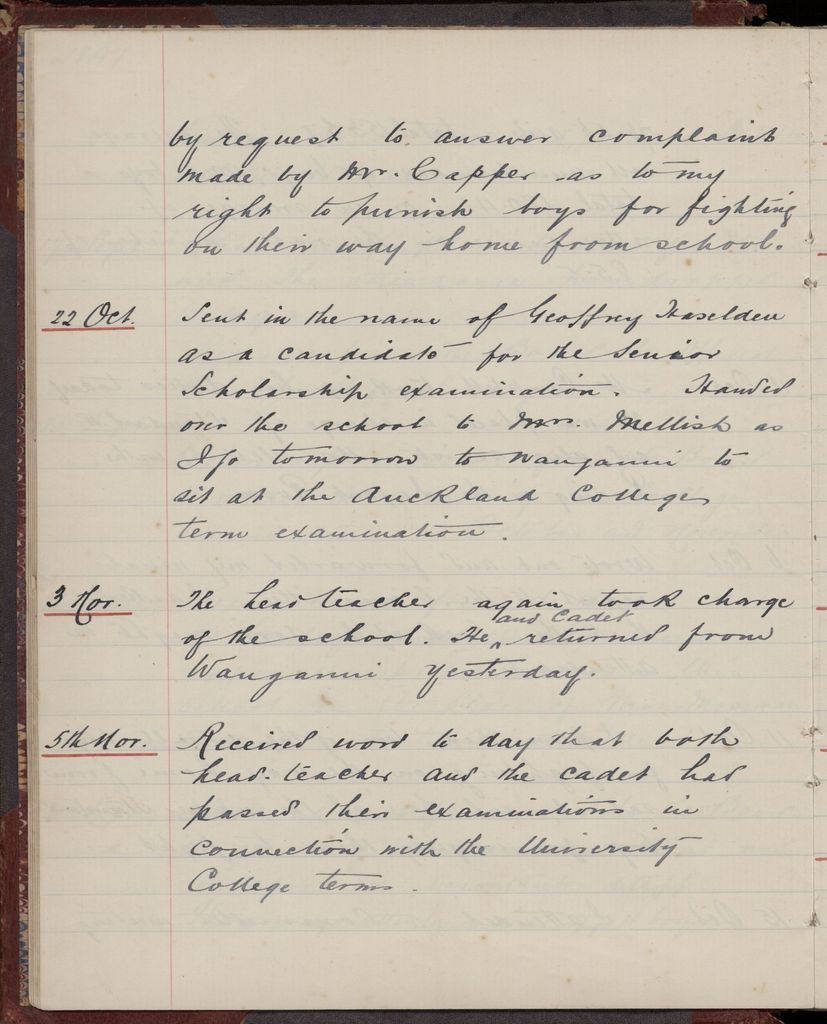 by request to answer complaint
made by Mr. Capper as to my
right to punish boys for fighting
on their way home from school.
22 Oct. Sent in the name of Geoffrey Haselden
as a candidate for the Senior
Scholarship examination. Handed
over the school to Mrs. Mellish as
I go tomorrow to Wanganui to
sit at the Auckland College
term examination.
3 Nov. The head teacher again took charge
and Cadet
of the school. He ^ returned from
Wanganui yesterday.
5th Nov. Received word to day that both
head-teacher and the cadet had
passed their examinations in
connection with the University
College terms.